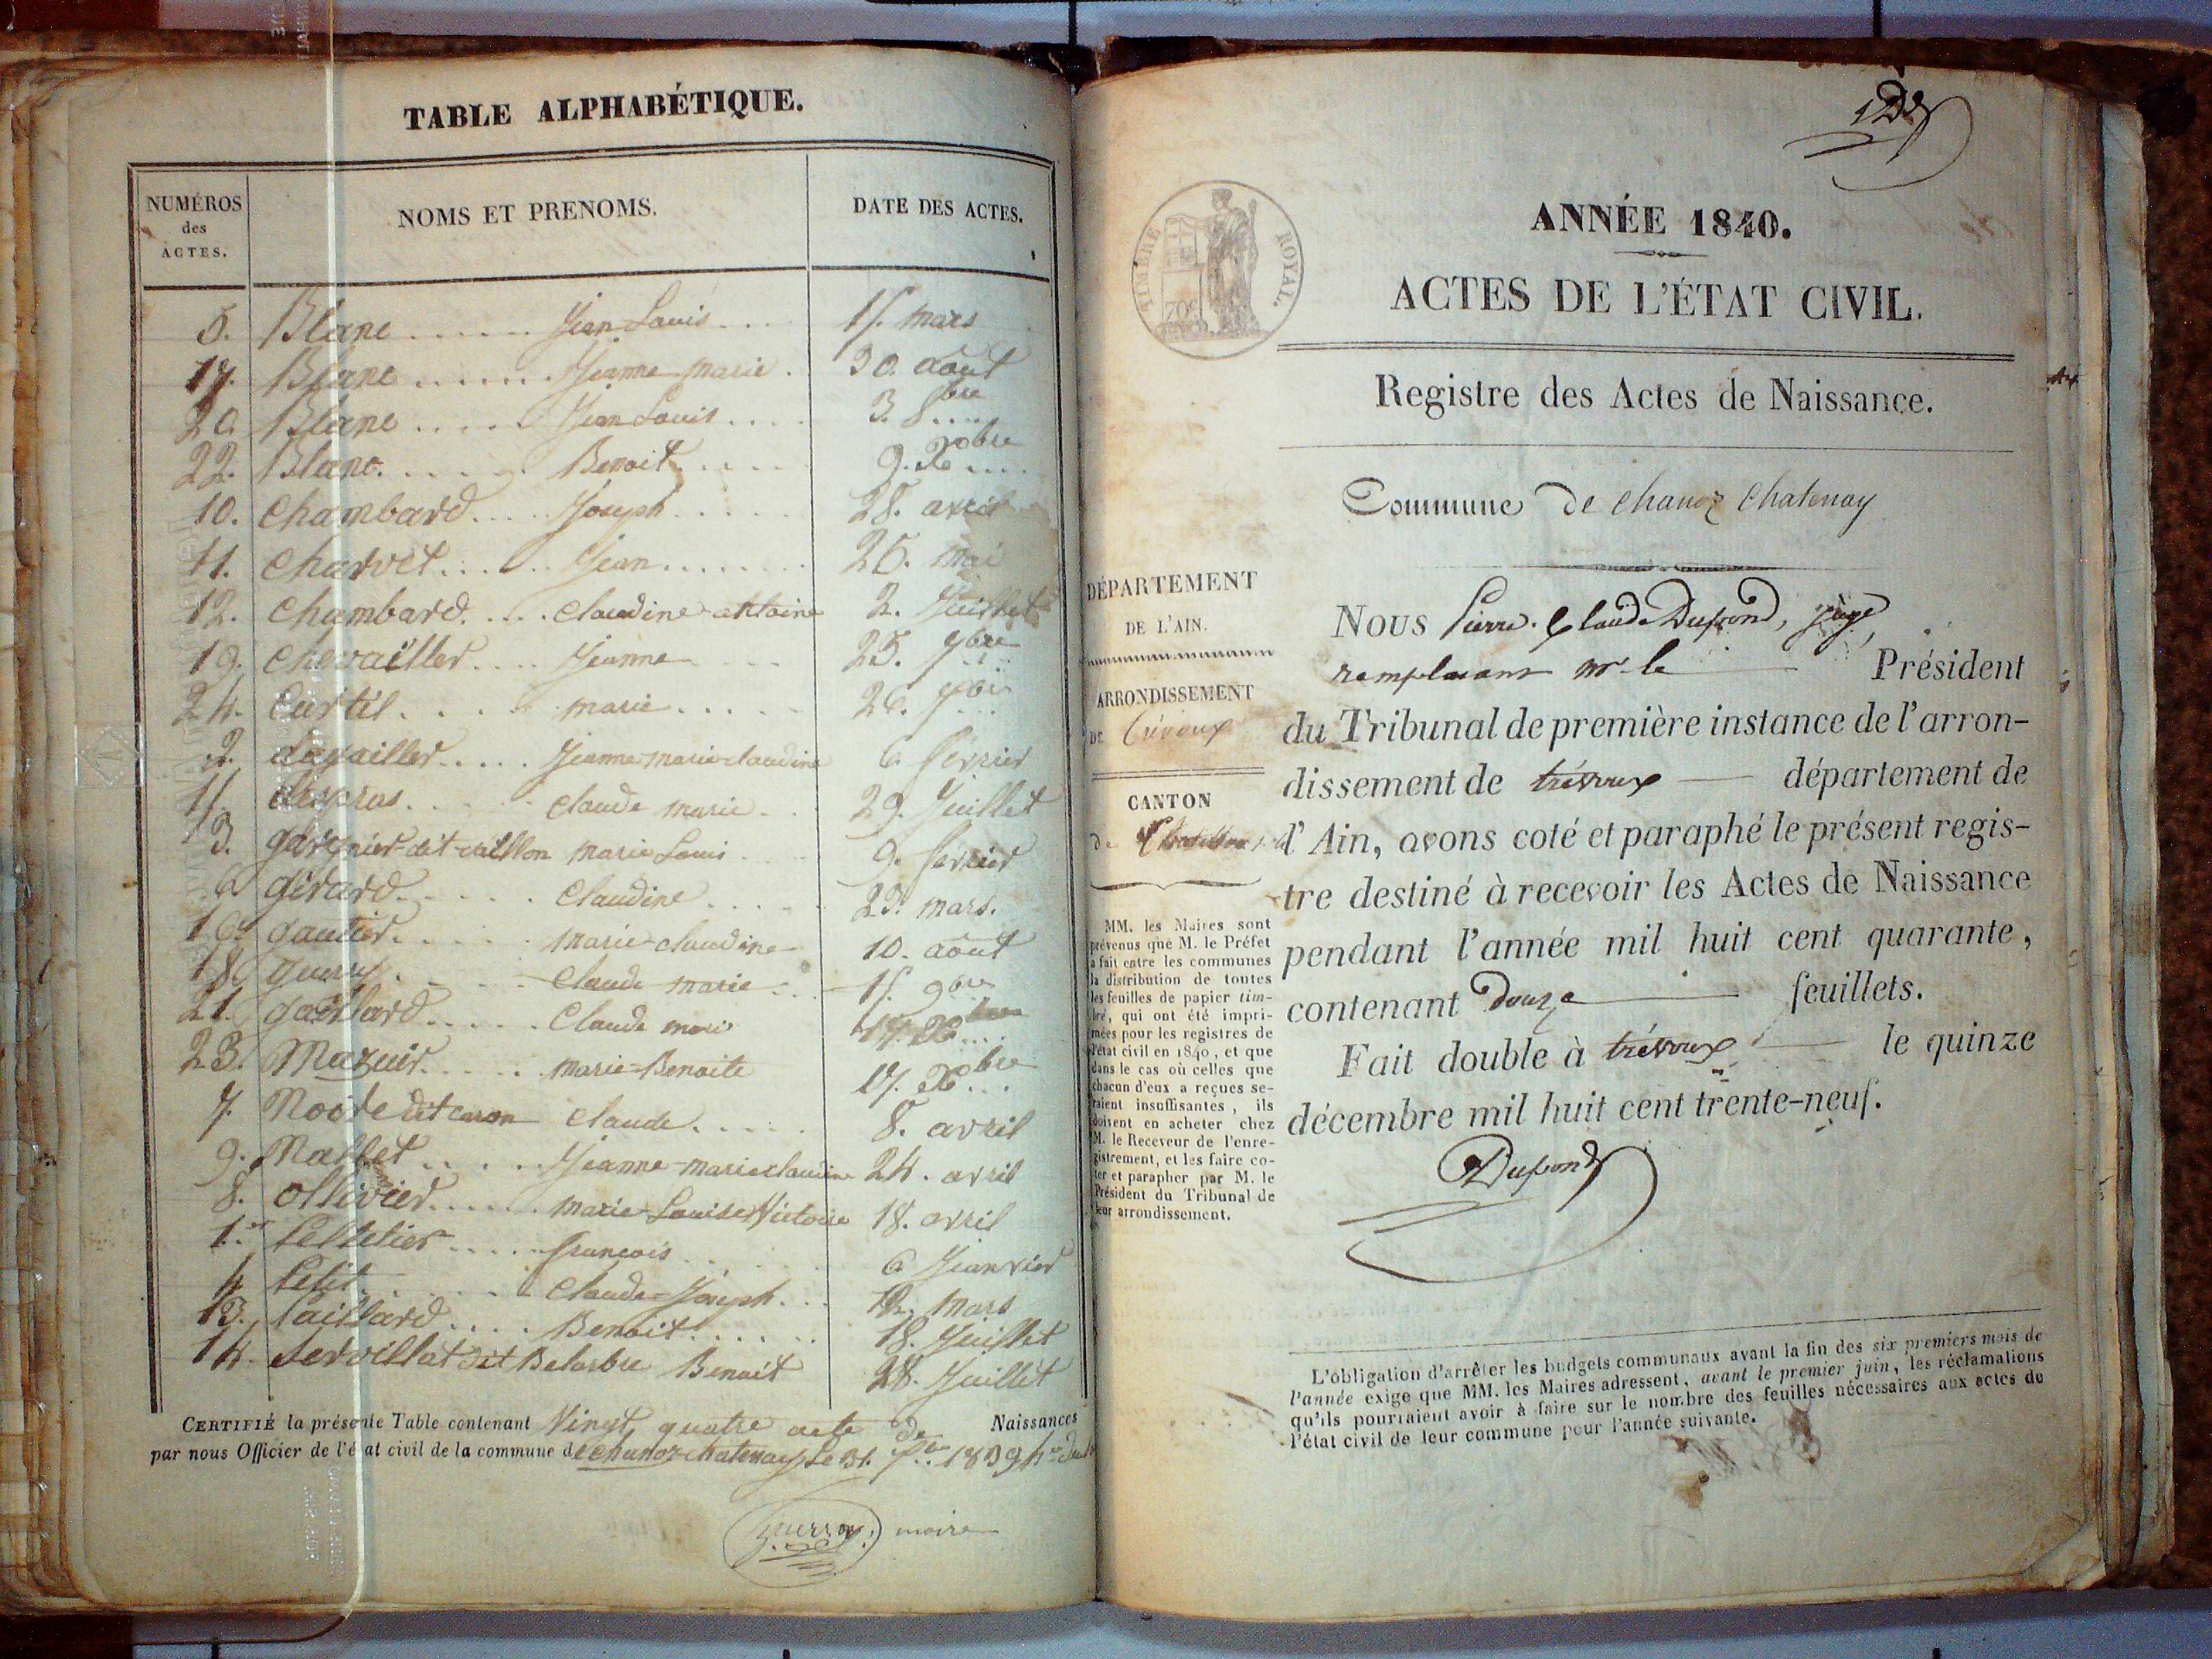 TABLE ALPHABÉTIQUE.
NUMÉROS
des
ACTES.
NOMS ET PRENOMS.
DATE DES ACTES.
5. Blanc Jean Louis 15. mars
17. Blanc Jeanne Marie 30. août
20. Blanc Jean Louis 3. 8bre
22. Blanc Benoit 9. Xbre
10. Chambard Joseph 28. avril
11. Charvet Jean 25. mai
12. Chambard Claudine antoine 2. Juillet
19. Chevailler Jeanne 25. 7bre
24. Curtil marie 26. Xbre
2. dagailler Jeanne marie claudine 6 fevrier
15. desgras Claude marie 29. Juillet
3. marie Louis 9. fevrier
6 girard Claudine 23. mars.
16. gautier marie claudine 10. août
18. Claude marie
21. gaillard Claude mari 17. Xbre
23. Mazuir marie Benoite 17. Xbre
7. dit caron Claude 8. avril
9. Mallet Jeanne marie claudine 24. avril
8. ollivier marie Louise Victoire 18. avril
1er Pelletier francois 6 Janvier
4 Petit Claude Joseph 12. mars
13. Paillard Benoit 18. Juillet
14. Servillat dit Delarbre Benoit 28. Juillet
CERTIFIÉ la présente Table contenant Vingt quatre acte de Naissances
par nous Officier de l'état civil de la commune de chanoz chatenay Le 31. Xbre 1839
maire
ANNÉE 1840.
ACTES DE L'ÉTAT CIVIL.
TIMBRE ROYAL.
70c
Registre des Actes de Naissance.
Commune de chanoz Chatenay
DÉPARTEMENT
DE L'AIN.
ARRONDISSEMENT
DE Trévoux
CANTON
de Chatillon
MM. les Maires sont
prévenus que M. le Préfet
a fait entre les communes
la distribution de toutes
les feuilles de papier tim-
bré, qui ont été impri-
mées pour les registres de
l'état civil en 1840, et que
dans le cas où celles que
chacun d'eux a reçues se-
raient insuffisantes, ils
doivent en acheter chez
M. le Receveur de l'enre-
gistrement, et les faire co-
ter et parapher par M. le
Président du Tribunal de
leur arrondissement.
Nous Pierre Claude Dupond, juge
remplaçant mr le Président
du Tribunal de première instance de l'arron-
dissement de trévoux département de
l'Ain, avons coté et paraphé le présent regis-
tre destiné à recevoir les Actes de Naissance
pendant l'année mil huit cent quarante,
contenant Douze feuillets.
Fait double à trévoux le quinze
décembre mil huit cent trente-neuf.
Dupond
L'obligation d'arrêter les budgets communaux avant la fin des six premiers mois de
l'année exige que MM. les Maires adressent, avant le premier juin, les réclamations
qu'ils pourraient avoir à faire sur le nombre des feuilles nécessaires aux actes de
l'état civil de leur commune pour l'année suivante.